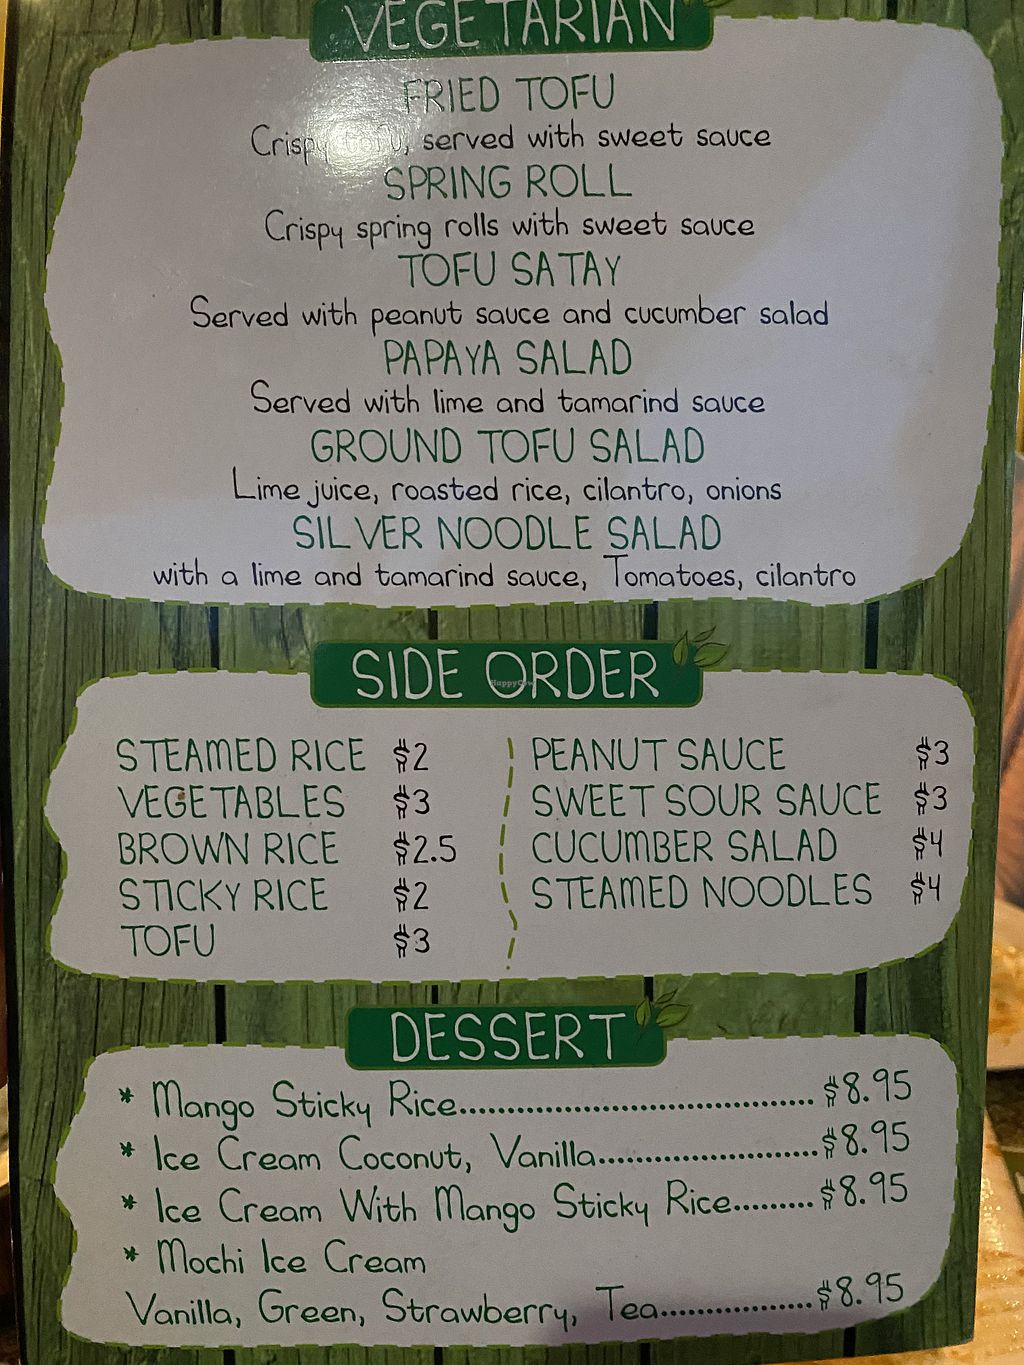 VEGETARIAN
FRIED TOFU
Crispy tofu, served with sweet sauce
SPRING ROLL
Crispy spring rolls with sweet sauce
TOFU SATAY
Served with peanut sauce and cucumber salad
PAPAYA SALAD
Served with lime and tamarind sauce
GROUND TOFU SALAD
Lime juice, roasted rice, cilantro, onions
SILVER NOODLE SALAD
with a lime and tamarind sauce, Tomatoes, cilantro
SIDE ORDER
HappyCow
STEAMED RICE $2
VEGETABLES $3
BROWN RICE $2.5
STICKY RICE $2
TOFU $3
PEANUT SAUCE $3
SWEET SOUR SAUCE $3
CUCUMBER SALAD $4
STEAMED NOODLES $4
DESSERT
* Mango Sticky Rice....................................... $8.95
* Ice Cream Coconut, Vanilla........................$8.95
* Ice Cream With Mango Sticky Rice.........$8.95
* Mochi Ice Cream
Vanilla, Green, Strawberry, Tea................$8.95